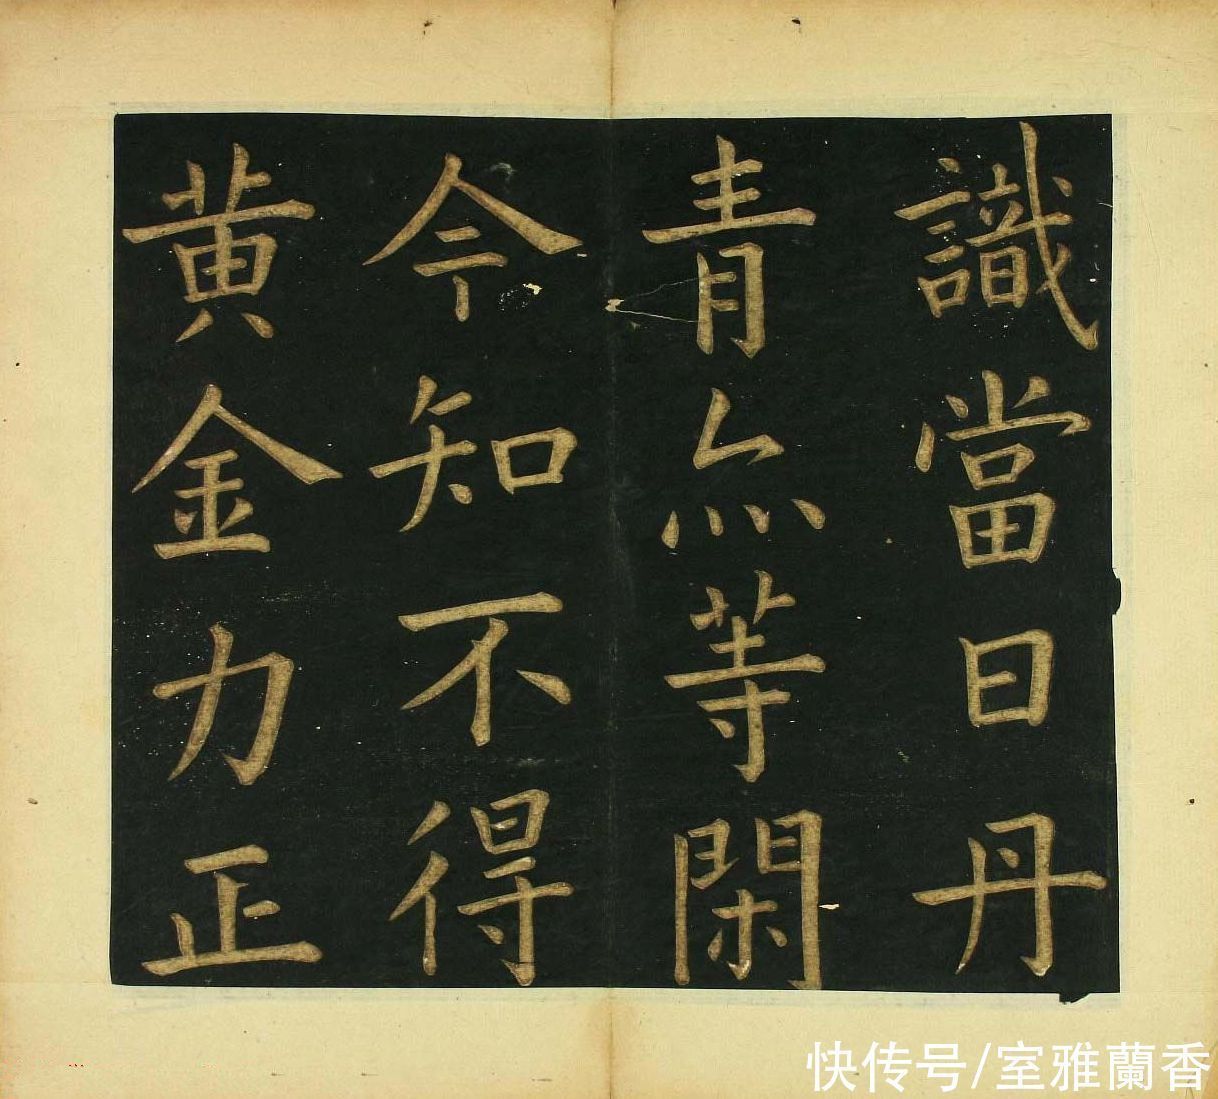 識當日丹
青亦等閑
今知不得
黄金力正
快传号/室雅蘭香